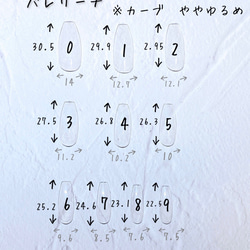 バレリーナ
※カーブ ややゆるめ
30.5 0 29.9 1 2.95 2
14 12.7 12.1
27.5 3 26.8 4 26.3 5
11.2 10.2 10
25.2 6 24.6 7 23.1 8 22.5 9
9.6 8.5 7.6 7.5